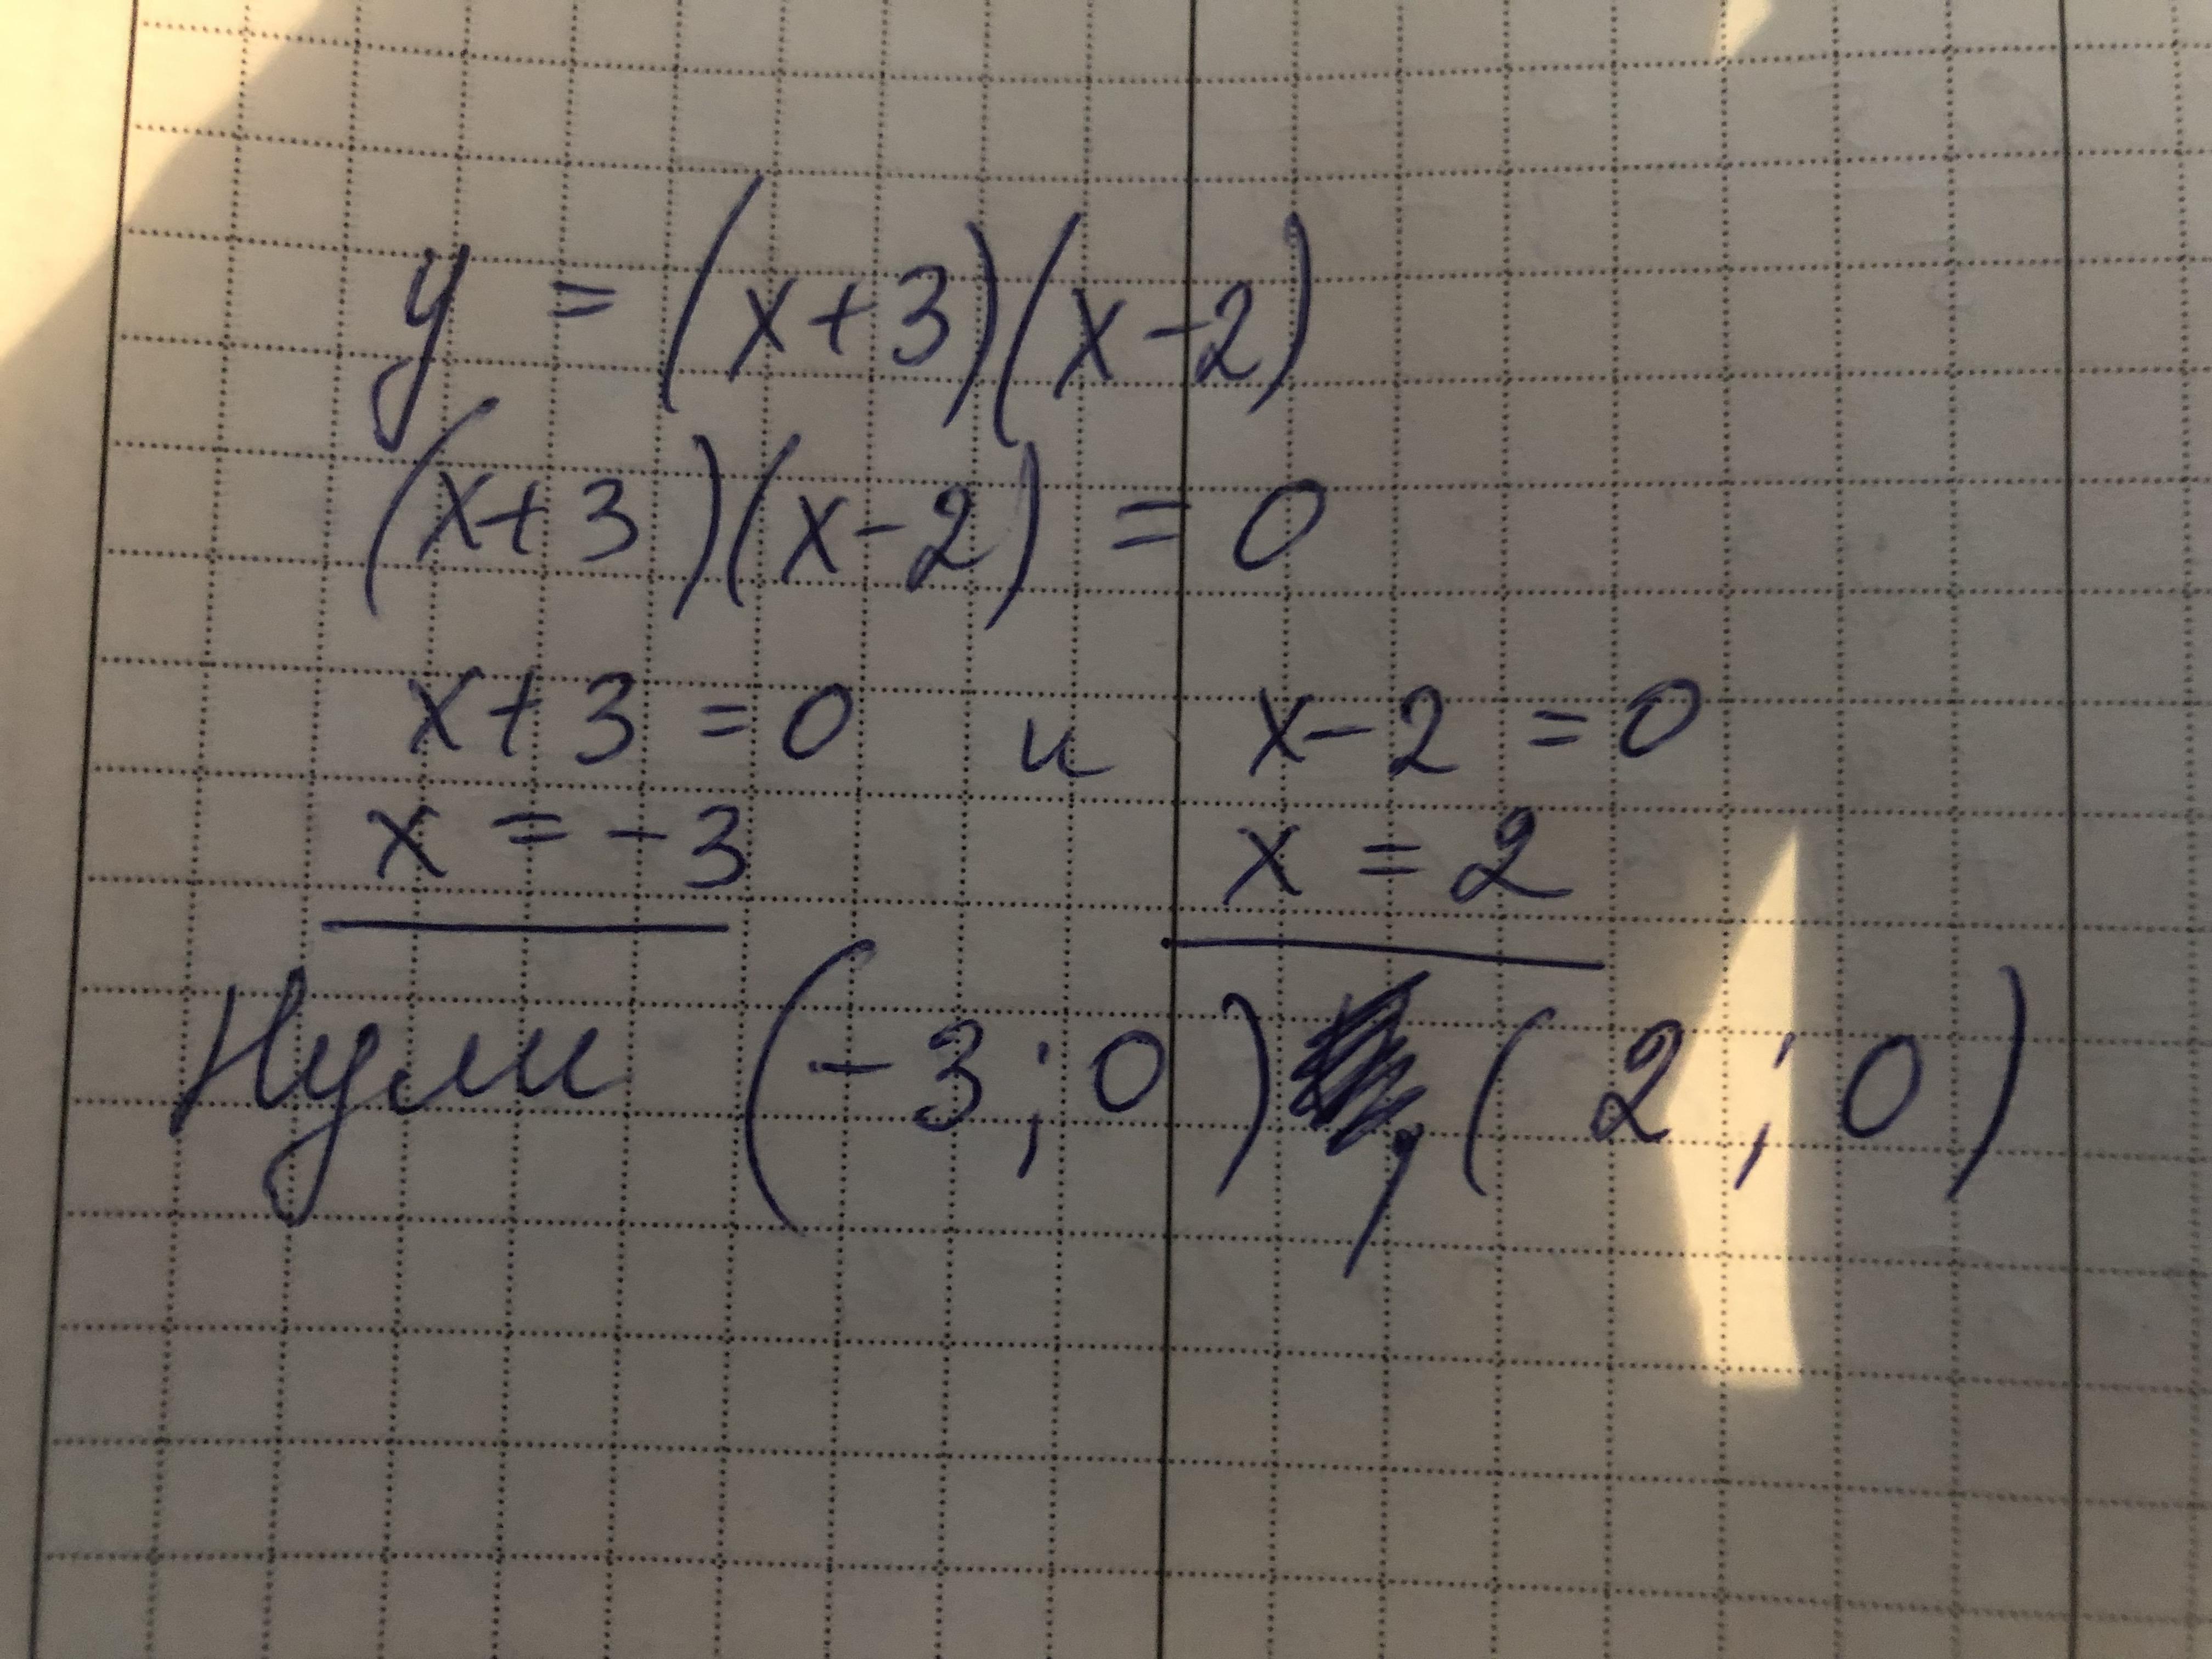 y = (x+3)(x-2)
(x+3)(x-2) = 0
x+3=0 и x-2=0
x = -3 x = 2
Нули (-3;0), (2;0)